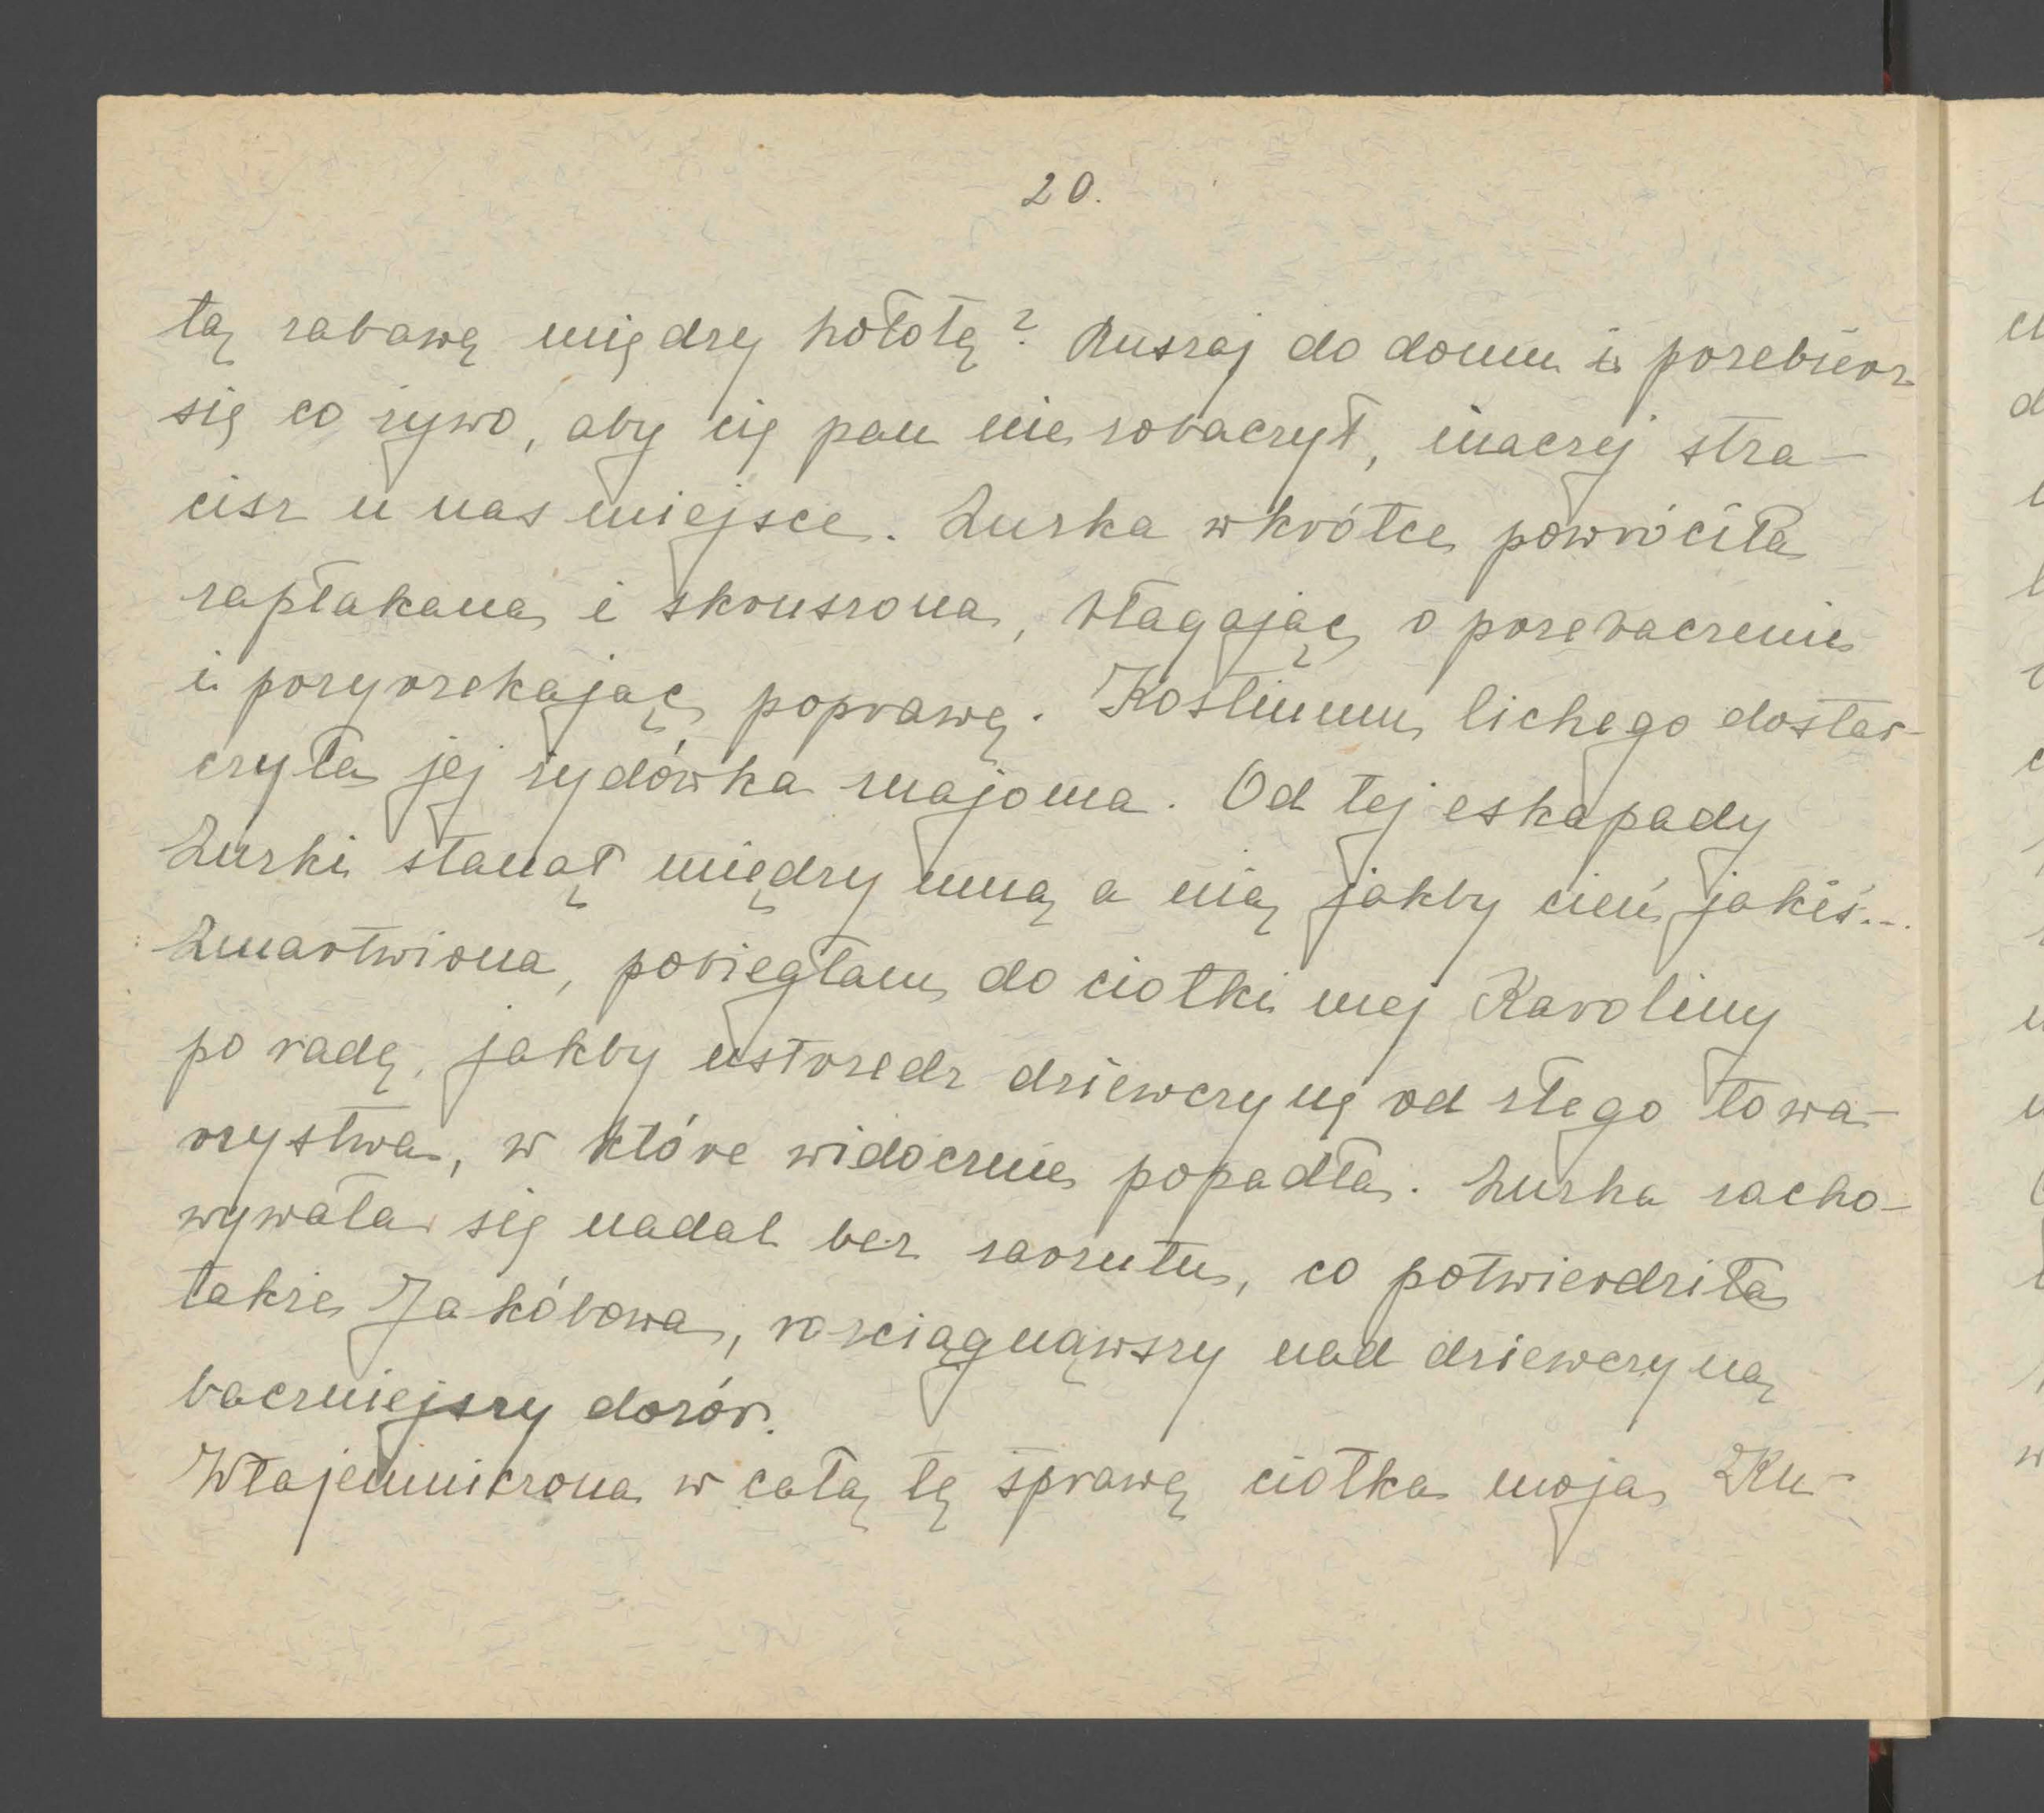 20.
tą zabawę między hołotę? Ruszaj do domu i przebierz
się co żywo, aby cię pan nie zobaczył, inaczej stra-
cisz u nas miejsce. Zuzka wkrótce powróciła
zapłakana i skruszona, błagając o przebaczenie
i przyrzekając poprawę. Kostiumu lichego dostar-
czyła jej żydówka znajoma. Od tej eskapady
Zuzki stanął między mną a nią jakby cień jakiś...
Zmartwiona, pobiegłam do ciotki mej Karoliny
po radę, jakby ustrzedz dziewczynę od złego towa-
rzystwa, w które widocznie popadła. Zuzka zacho-
wywała się nadal bez zarzutu, co potwierdziła
także Jakóbowa, rozciągnąwszy nad dziewczyną
baczniejszy dozór.
Wtajemniczona w całą tę sprawę ciotka moja